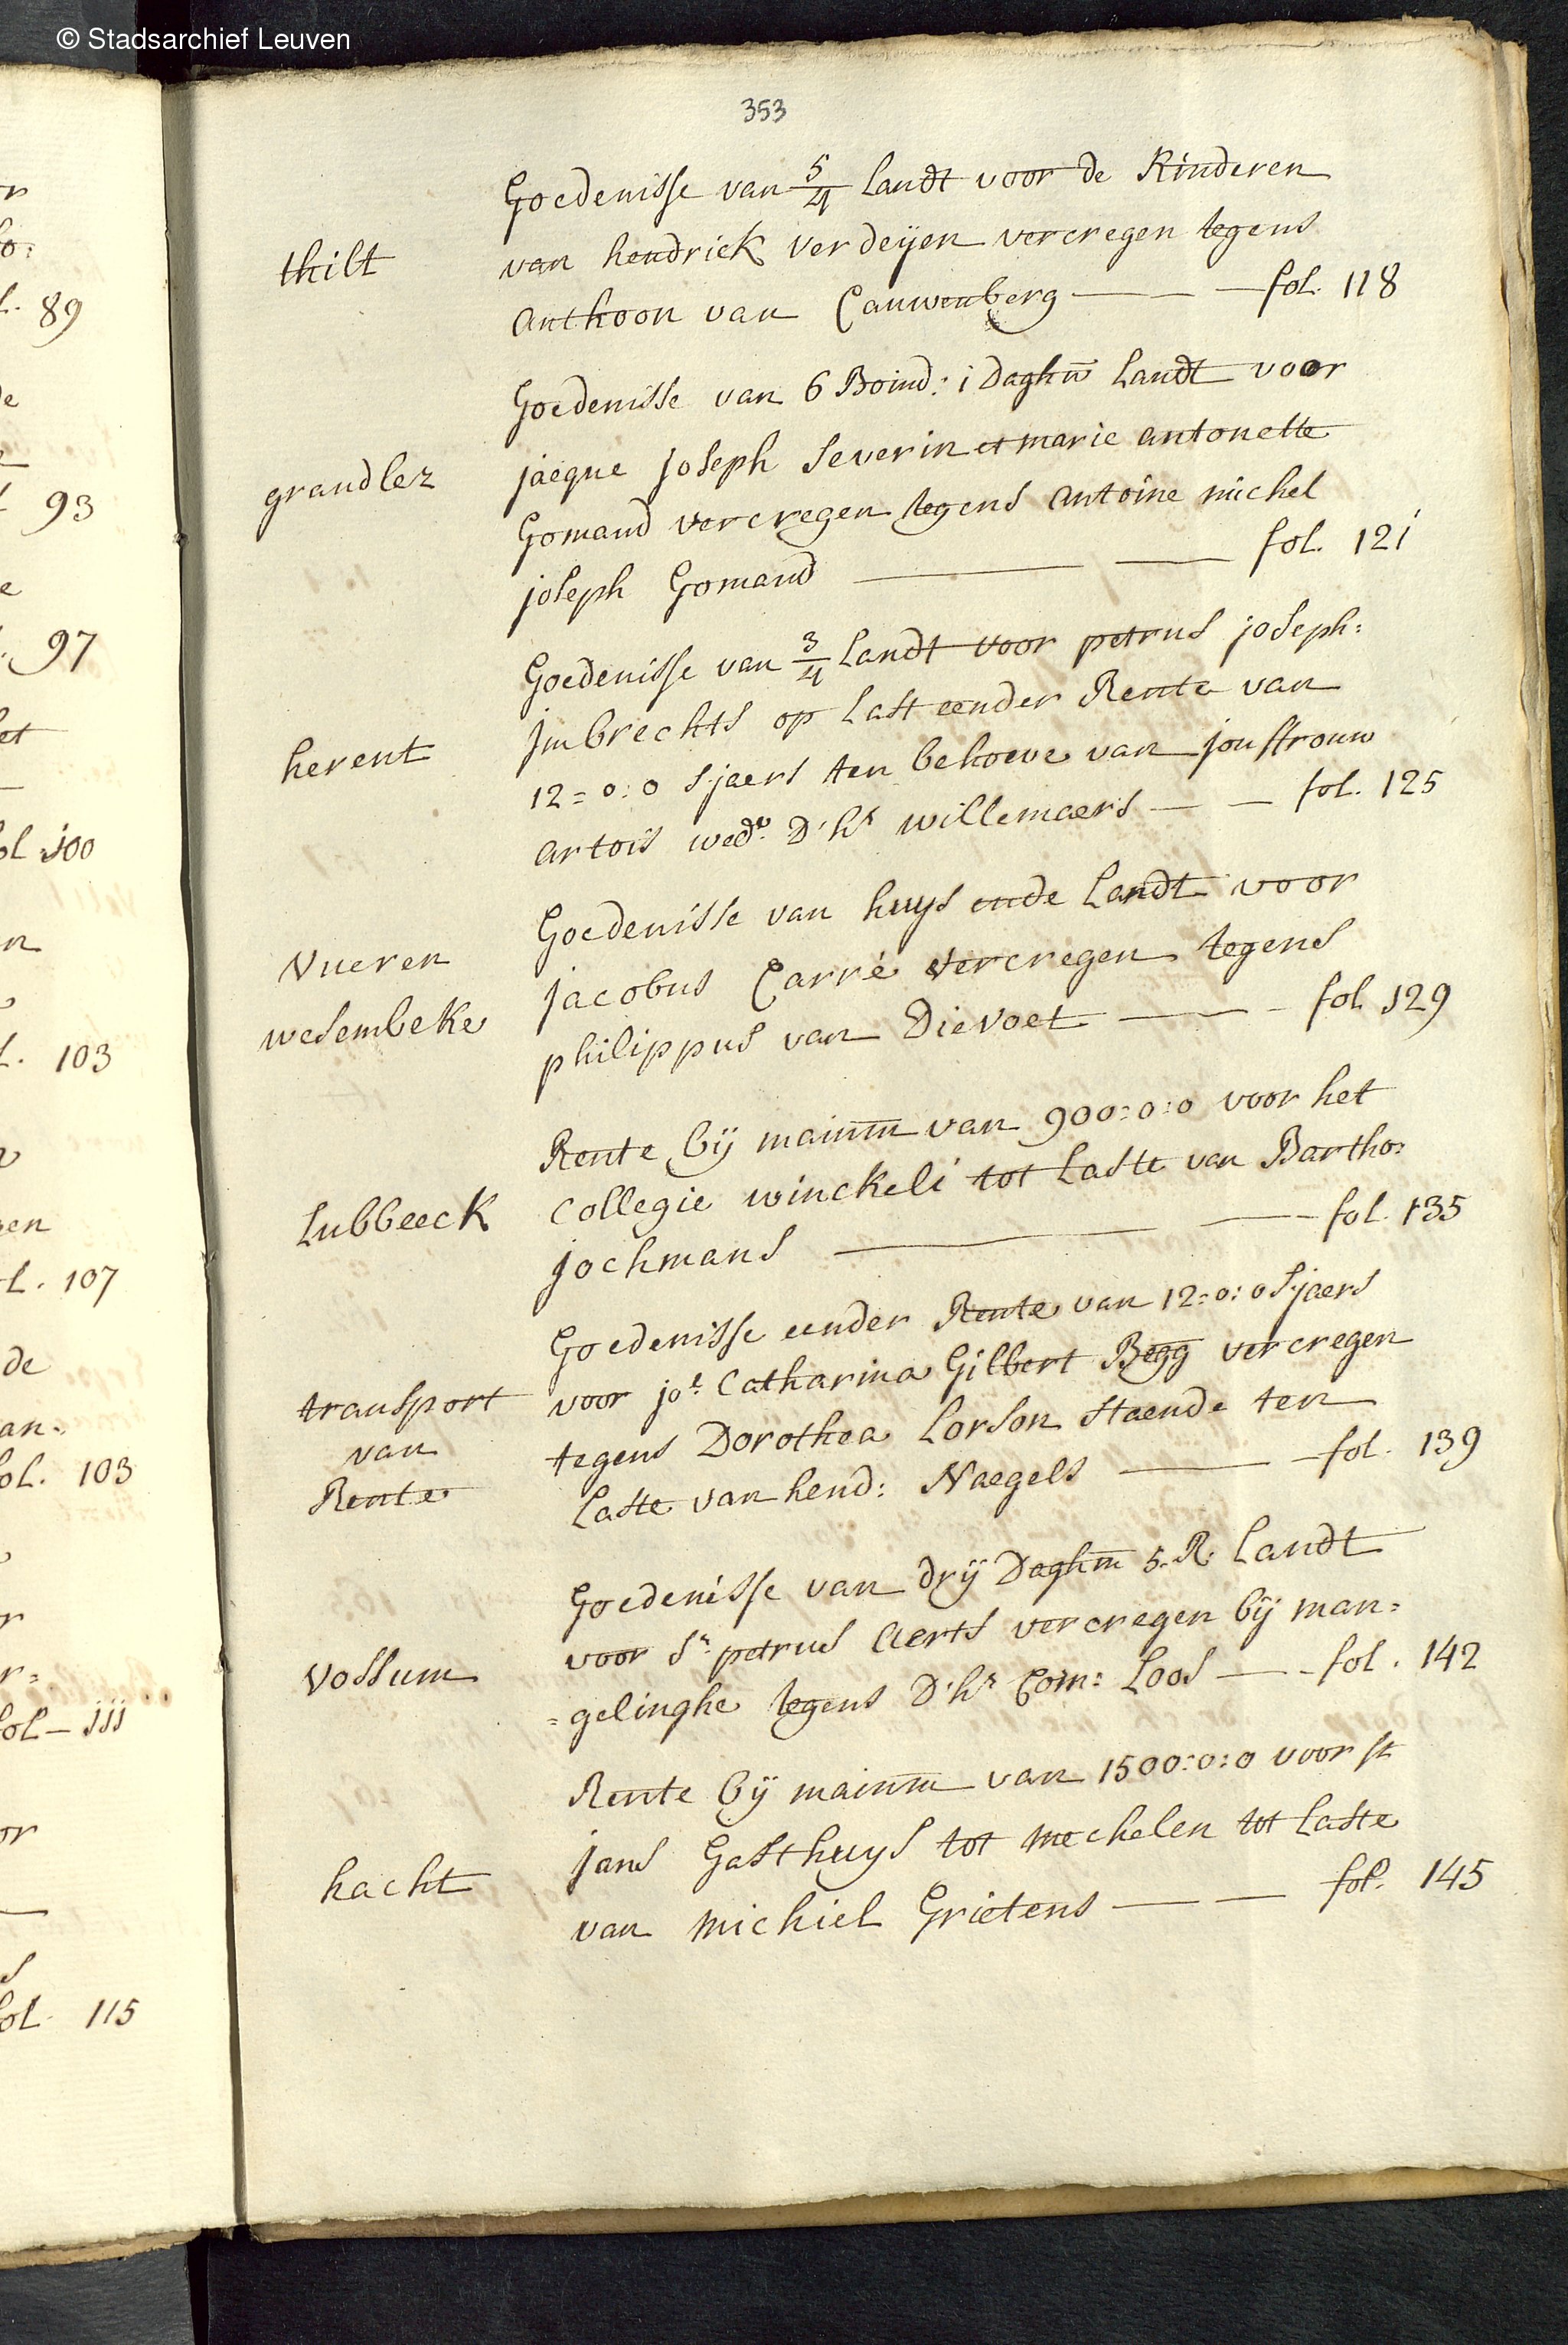 © Stadsarchief Leuven
353
Goedenisse van 5/4 landt voor de Kinderen
thilt van hendrick verdeijen vercregen tegens
anthoon van Cauwenberg — — fol. 118
Goedenisse van 6 Boind: i Daghw landt voor
grandlez jacque joseph Severin et marie antonette
Gomand vercregen tegens antoine michel
joseph Gomand — — fol. 121
Goedenisse van 3/4 landt voor petrus joseph:
herent jmbrechts op last eender Rente van
12=0:0 sjaers ten behoeve van jouffrouw
artois wede. D'hr willemaers — — fol. 125
Goedenisse van huys ende landt voor
Vueren jacobus Carré vercregen tegens
wesembeke philippus van Dievoet — — fol 129
Rente bij mainm van 900:0:0 voor het
Lubbeeck Collegie winckeli tot laste van Bartho:
jochmans — — fol. 135
Goedenisse eender Rente van 12:0:0 sjaers
transport voor jo.e Catharina Gilbert Begg vercregen
van tegens Dorothea Lorson staende ten
Rente laste van hend: Naegels — — fol. 139
Goedenisse van drij Daghm 5. R. landt
Vossum voor Sr. petrus Aerts vercregen bij man=
=gelinghe tegens D'hr Corn: Loos — — fol. 142
Rente bij mainm van 1500:0:0 voor st
hacht jans Gasthuys tot mechelen tot laste
van michiel Grietens — — fol. 145
89
93
97
100
103
107
de
103
fol — 111
115